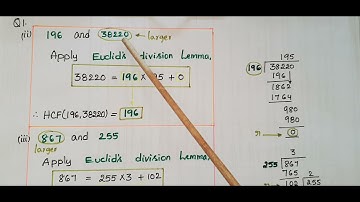 Q1.
(ii) 196 and 38220 ← larger
Apply Euclid's division Lemma,
38220 = 196 × 95 + 0
∴ HCF(196, 38220) = 196
(iii) 867 and 255
larger
Apply Euclid's division Lemma,
867 = 255 × 3 + 102
195
196 38220
196
1862
1764
980
980
0
3
255 867
765 2
102 255